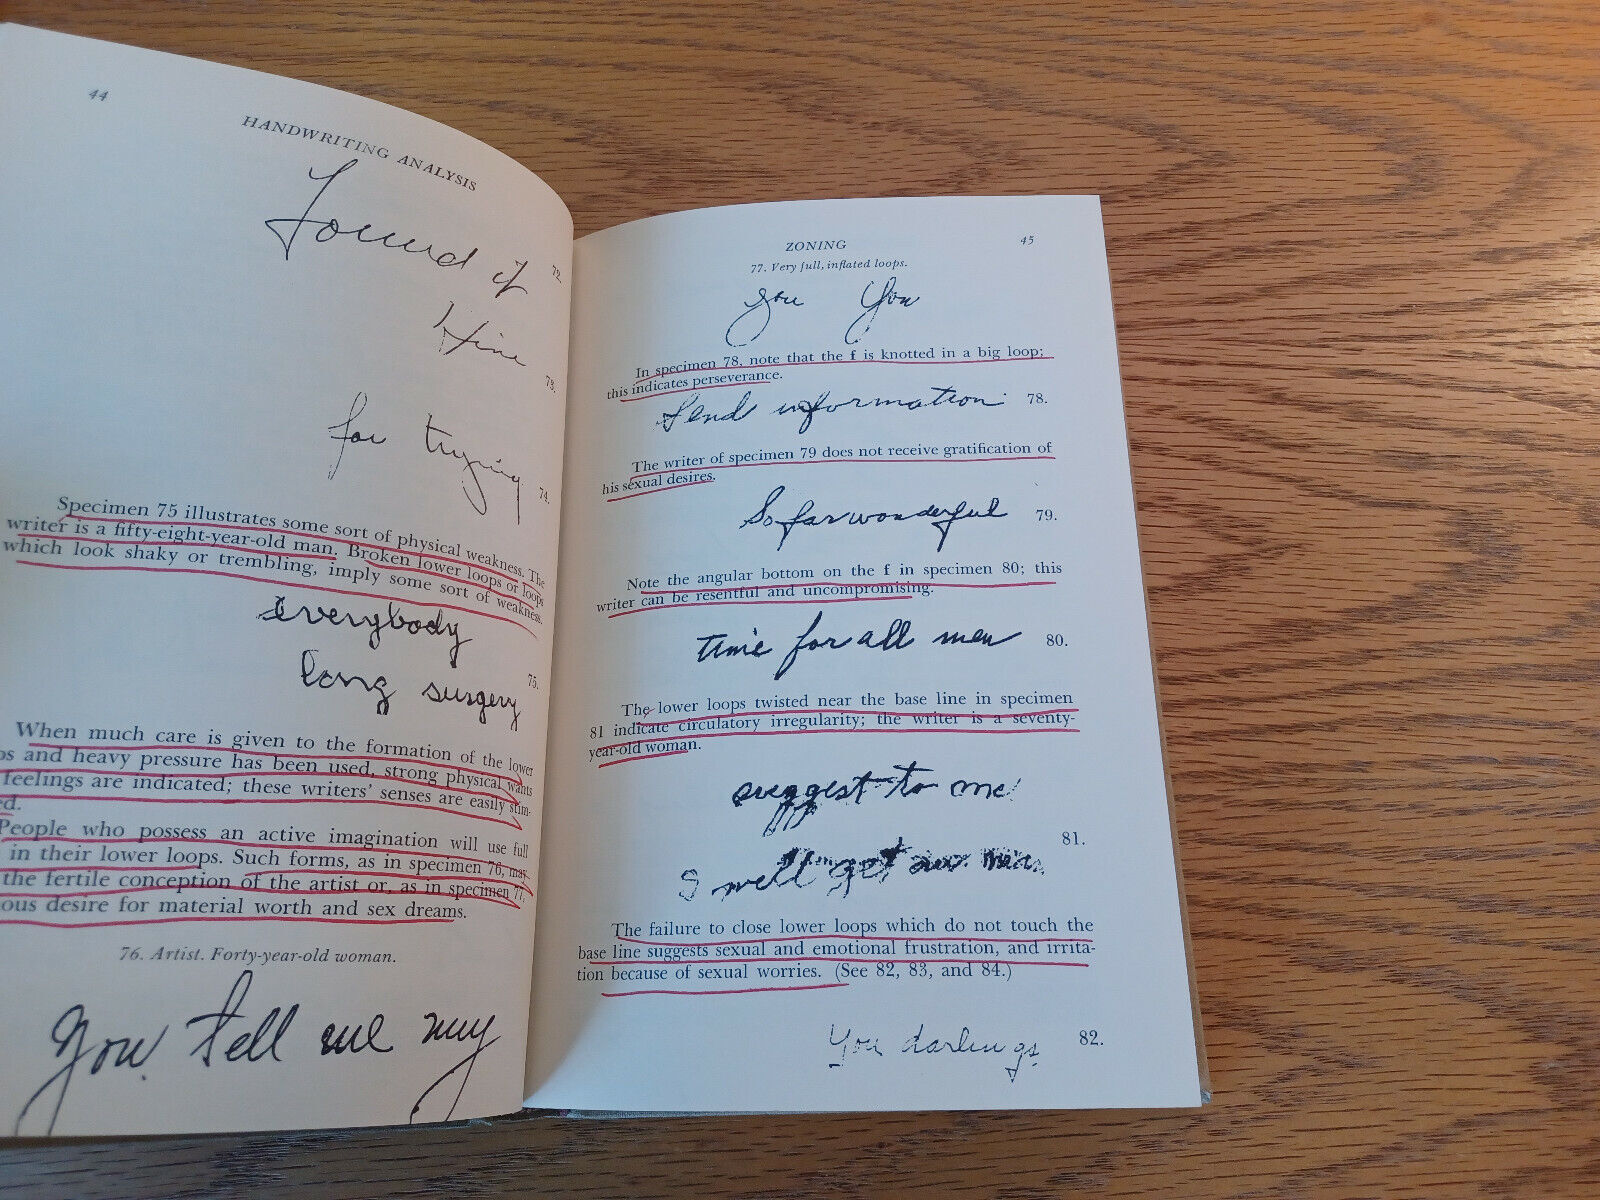 44
HANDWRITING ANALYSIS
Found if
72.
Hine
73.
for trying
74.
Specimen 75 illustrates some sort of physical weakness. The
writer is a fifty-eight-year-old man. Broken lower loops or loops
which look shaky or trembling, imply some sort of weakness.
everybody
long surgery
75.
When much care is given to the formation of the lower
and heavy pressure has been used, strong physical wants
feelings are indicated; these writers' senses are easily stim-
People who possess an active imagination will use full
in their lower loops. Such forms, as in specimen 76, may
the fertile conception of the artist or, as in specimen 77,
desire for material worth and sex dreams.
76. Artist. Forty-year-old woman.
you tell me my
ZONING
45
77. Very full, inflated loops.
you You
In specimen 78, note that the f is knotted in a big loop;
this indicates perseverance.
Send information 78.
The writer of specimen 79 does not receive gratification of
his sexual desires.
So far wonderful 79.
Note the angular bottom on the f in specimen 80; this
writer can be resentful and uncompromising.
time for all men 80.
The lower loops twisted near the base line in specimen
81 indicate circulatory irregularity; the writer is a seventy-
year-old woman.
suggest to me
81.
I will get
The failure to close lower loops which do not touch the
base line suggests sexual and emotional frustration, and irrita-
tion because of sexual worries. (See 82, 83, and 84.)
You darlings 82.